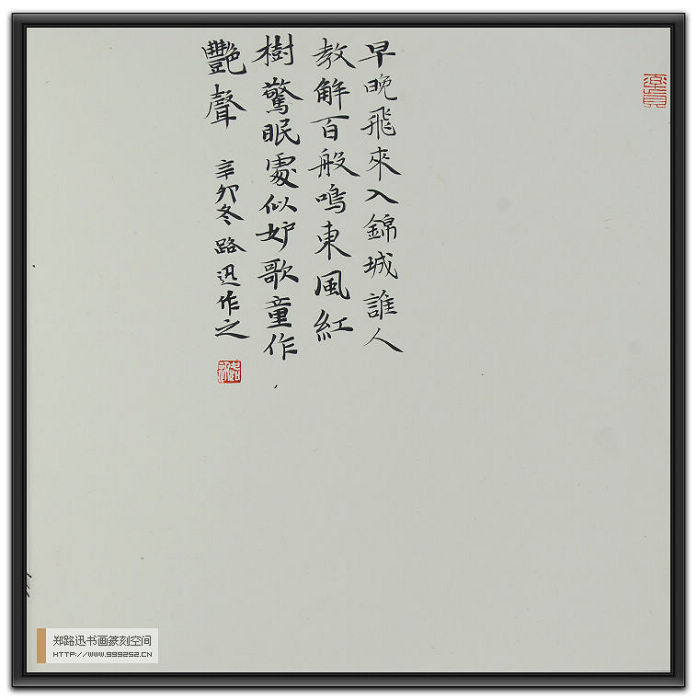 早晚飛來入錦城誰人
教解百般鳴東風紅
樹驚眠處似妒歌童作
艷聲
辛卯冬路迅作之
郑路迅书画篆刻空间
HTTP://WWW.999252.CN